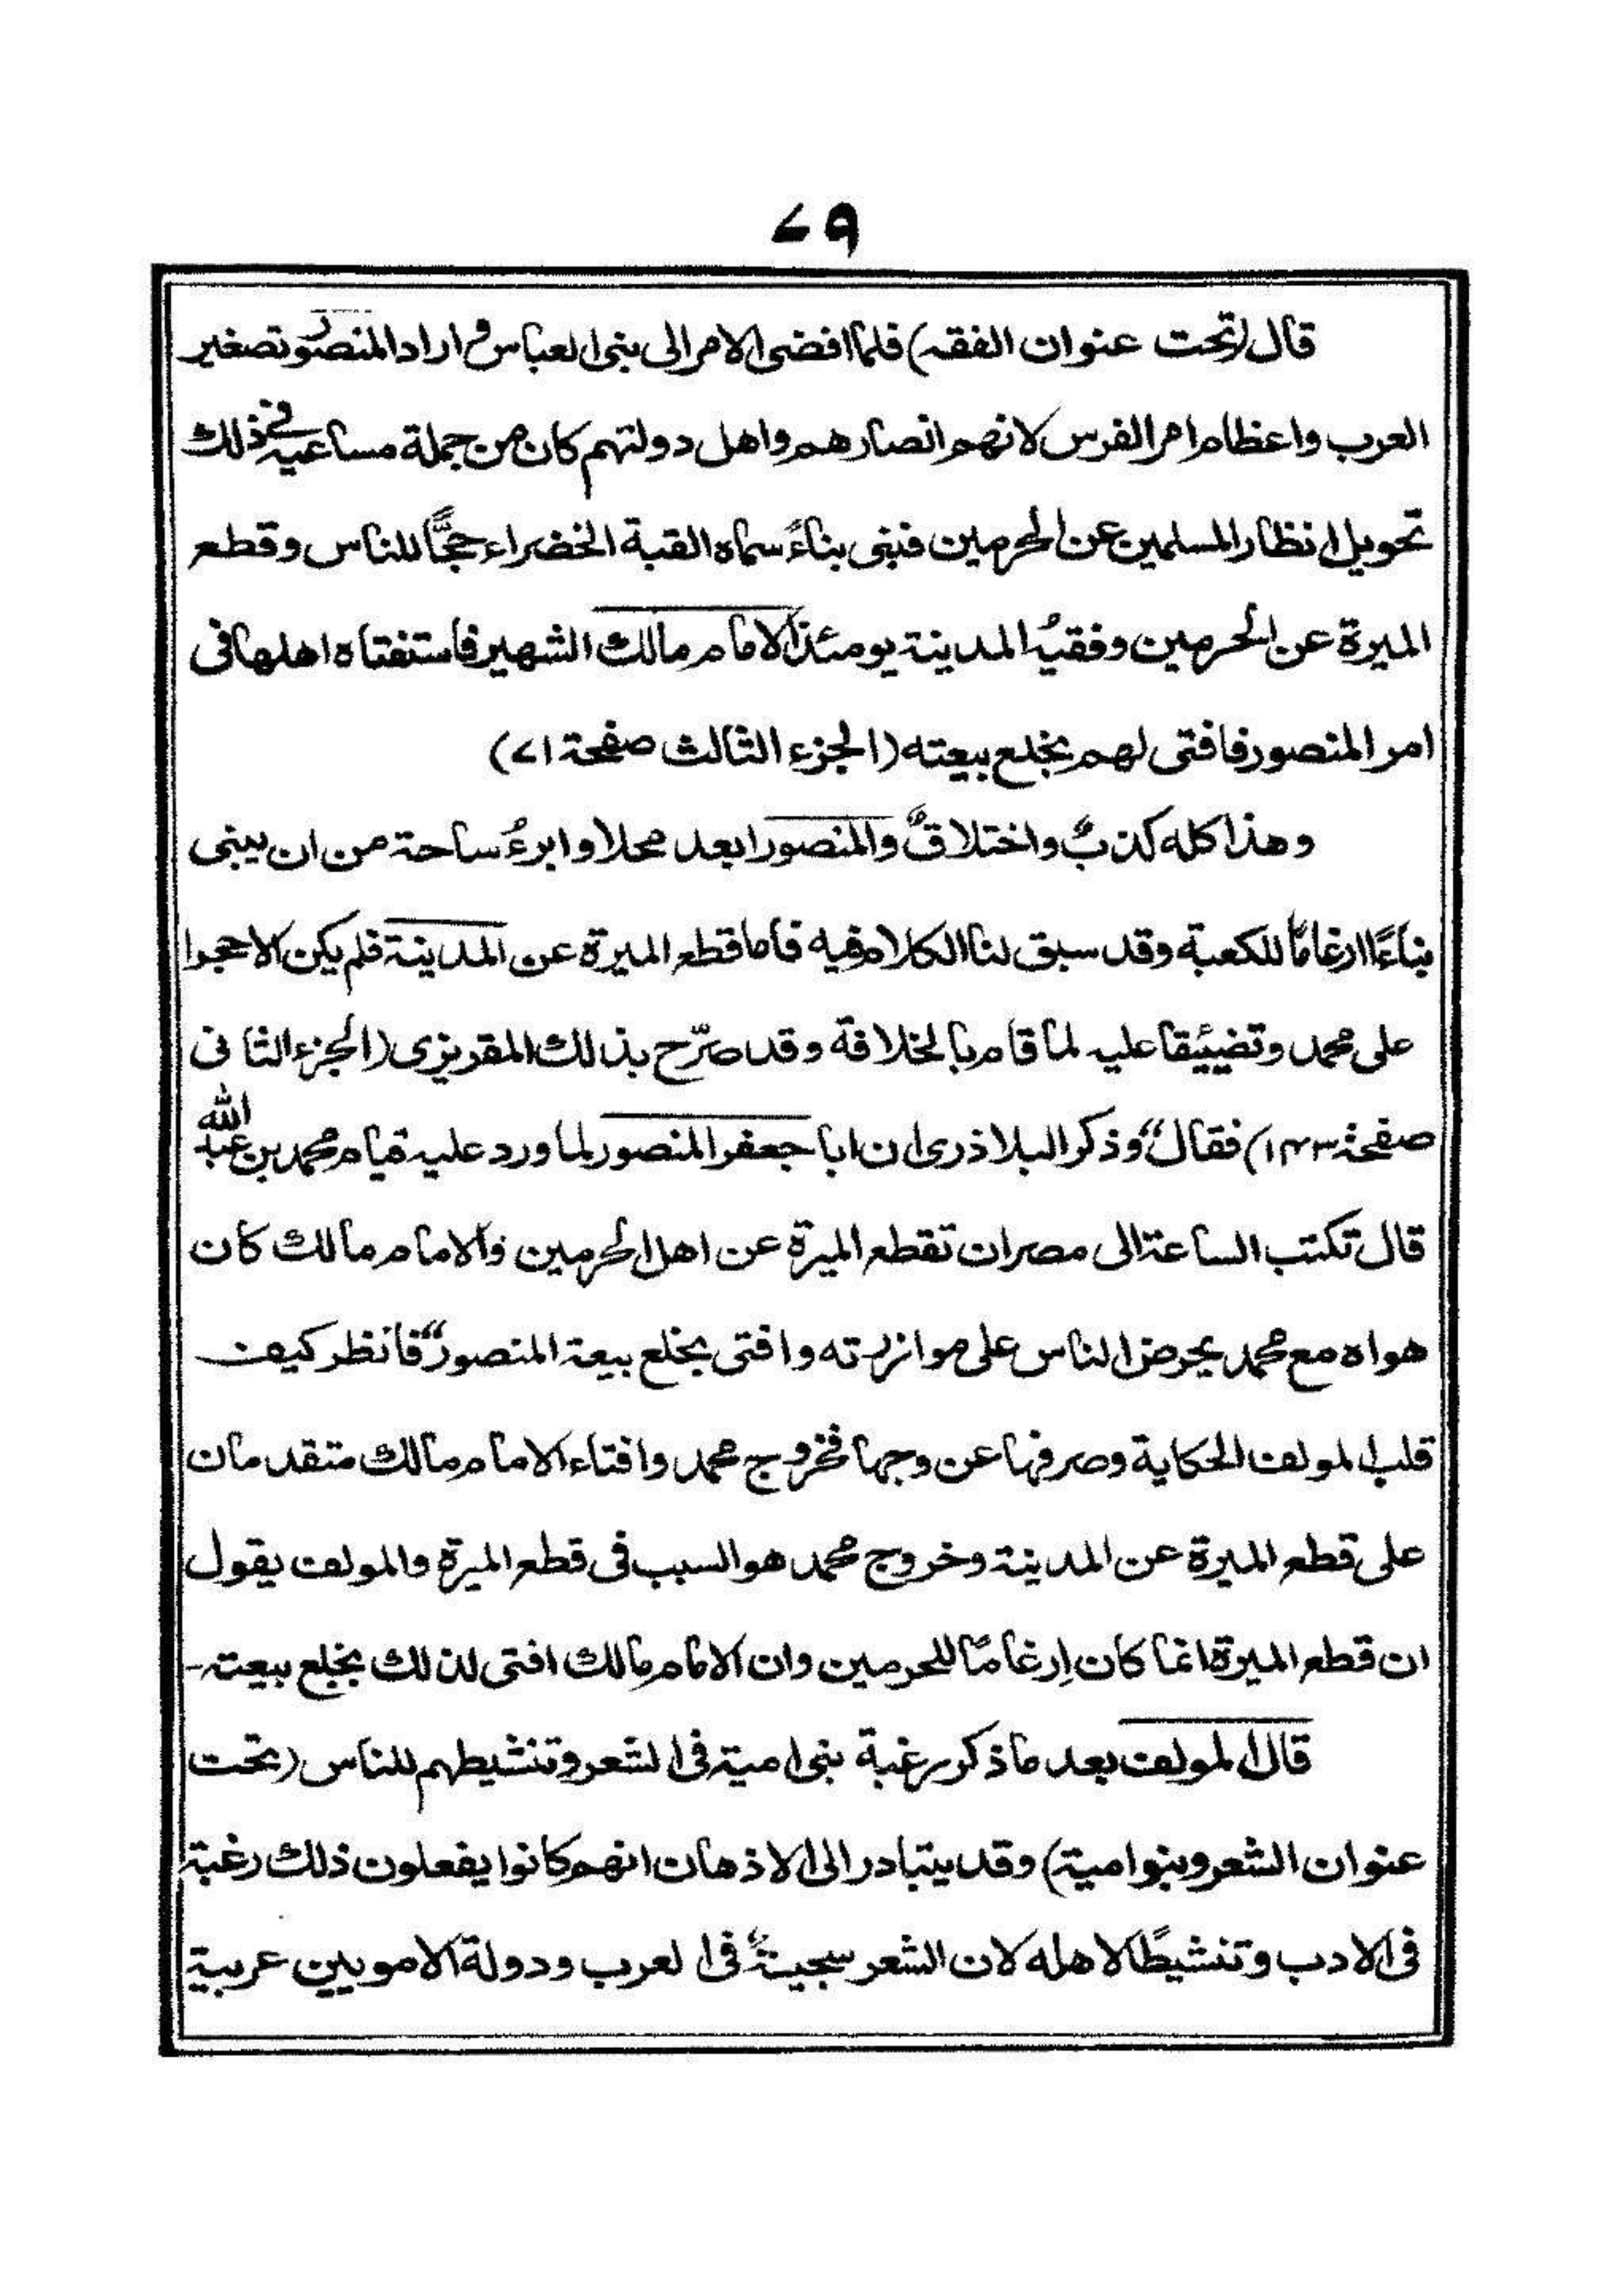 ٧٩
قال (تحت عنوان الفقه) فلما افضى الامر الى بنى العباس و اراد المنصور تصغير
العرب واعظام امر الفرس لانهم انصارهم واهل دولتهم كان من جملة مساعيه فى ذلك
تحويل انظار المسلمين عن الحرمين فبنى بناءً سماه القبة الخضراء حجًّا للناس وقطع
الميرة عن الحرمين وفقيهُ المدينة يومئذ الامام مالك الشهير فاستفتاه اهلها فى
امر المنصور فافتى لهم بخلع بيعته (الجزء الثالث صفحة ٧١)
وهذا كله كذبٌ واختلاقٌ والمنصور ابعد محلا وابرءُ ساحة من ان يبنى
بناءًا ارغامًا للكعبة وقد سبق لنا الكلام فيه فاما قطع الميرة عن المدينة فلم يكن الا حجرا
على محمد وتضييقا عليه لما قام بالخلافة وقد صرّح بذلك المقريزى (الجزء الثانى
صفحة ١٤٣) فقال "وذكر البلاذرى ان ابا جعفر المنصور لما ورد عليه قيام محمد بن عبد الله
قال تكتب الساعة الى مصران تقطع الميرة عن اهل الحرمين والامام مالك كان
هواه مع محمد يحرض الناس على موازرته وافتى بخلع بيعة المنصور" فانظر كيف
قلب المولف الحكاية وصرفها عن وجهها فخروج محمد وافتاء الامام مالك متقدمان
على قطع الميرة عن المدينة وخروج محمد هو السبب فى قطع الميرة والمولف يقول
ان قطع الميرة انما كان اِرغامًا للحرمين وان الامام مالك افتى لذلك بخلع بيعته-
قال المولف بعد ما ذكر رغبة بنى امية فى الشعر وتنشيطهم للناس (تحت
عنوان الشعر وبنو امية) وقد يتبادر الى الاذهان انهم كانوا يفعلون ذلك رغبة
فى الادب وتنشيطًا لاهله لان الشعر سجيةٌ فى العرب ودولة الامويين عربية